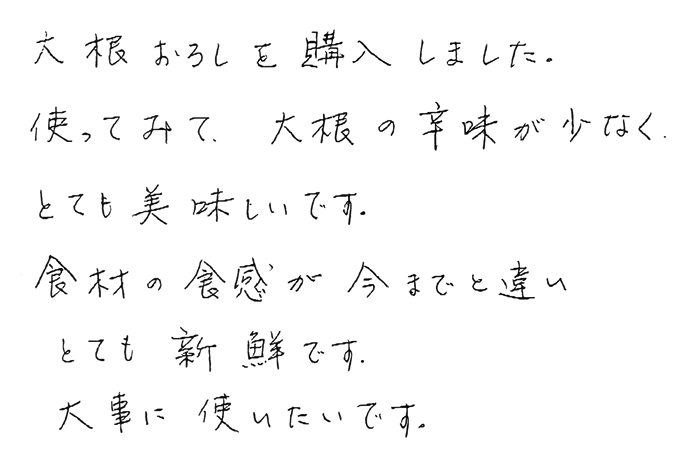 大根おろしを購入しました。
使ってみて、大根の辛味が少なく、
とても美味しいです。
食材の食感が今までと違い
とても新鮮です。
大事に使いたいです。